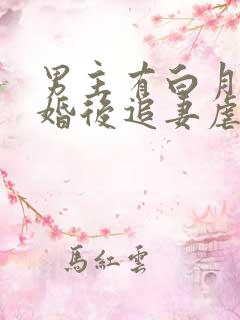 男主有白月
婚後追妻虐
馬紅雲